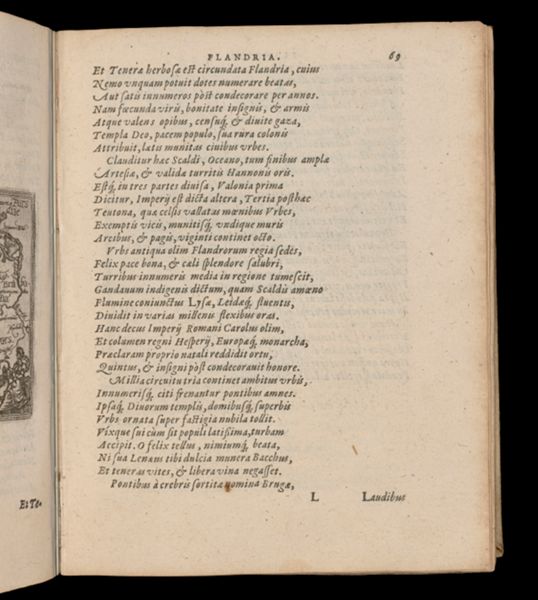 FLANDRIA. 69
Et Teneræ herbosæ est circundata Flandria, cuius
Nemo vnquam potuit dotes numerare beatas,
Aut satis innumeros pòst condecorare per annos.
Nam fœcunda viris, bonitate insignis, & armis
Atque valens opibus, censuq́, & diuite gaza,
Templa Deo, pacem populo, sua rura colonis
Attribuit, latis munitas ciuibus vrbes.
Clauditur hæc Scaldi, Oceano, tum finibus amplæ
Artesiæ, & validæ turritis Hannonis oris.
Estq́, in tres partes diuisa, Valonia prima
Dicitur, Imperij est dicta altera, Tertia posthac
Teutona, quæ celsis vallatas mœnibus Vrbes,
Exemptis vicis, munitisq́, vndique muris
Arcibus, & pagis, viginti continet octo.
Vrbs antiqua olim Flandrorum regia sedes,
Felix pace bona, & cæli splendore salubri,
Turribus innumeris media in regione tumescit,
Gandauum indigenis dictum, quam Scaldis amœno
Flumine coniunctus Lysæ, Leidæq́, fluentis,
Diuidit in varias millenis flexibus oras.
Hanc decus Imperij Romani Carolus olim,
Et columen regni Hesperij, Europæq́, monarcha,
Præclaram proprio natali reddidit ortu,
Quintus, & insigni pòst condecorauit honore.
Millia circuitu tria continet ambitus vrbis,
Innumerisq́, citi frenantur pontibus amnes.
Ipsaq́, Diuorum templis, domibusq́, superbis
Vrbs ornata super fastigia nubila tollit.
Vixque sui cùm sit populi latissima, turbam
Accipit. O felix tellus, nimiumq́, beata,
Ni sua Lenæus tibi dulcia munera Bacchus,
Et teneras vites, & libera vina negasset.
Pontibus à crebris sortita nomina Brugæ,
L Laudibus
Et Te-